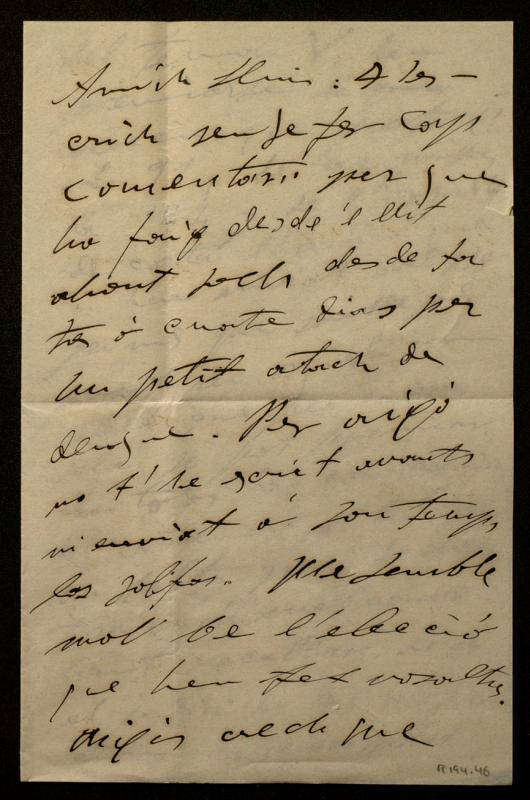 Amich Lluis: A les-
crich sense fer cap
comentari per que
ho faig desde 'l llit
ahont soch desde fa
tres ó cuatre dias per
un petit atach de
dengue. Per aixó
no t' he scrit avants
ni enviat á son temps
los solfas. Me sembla
mol be l'elecció
que heu fet vosaltres.
Aixis crech que
R 194.46